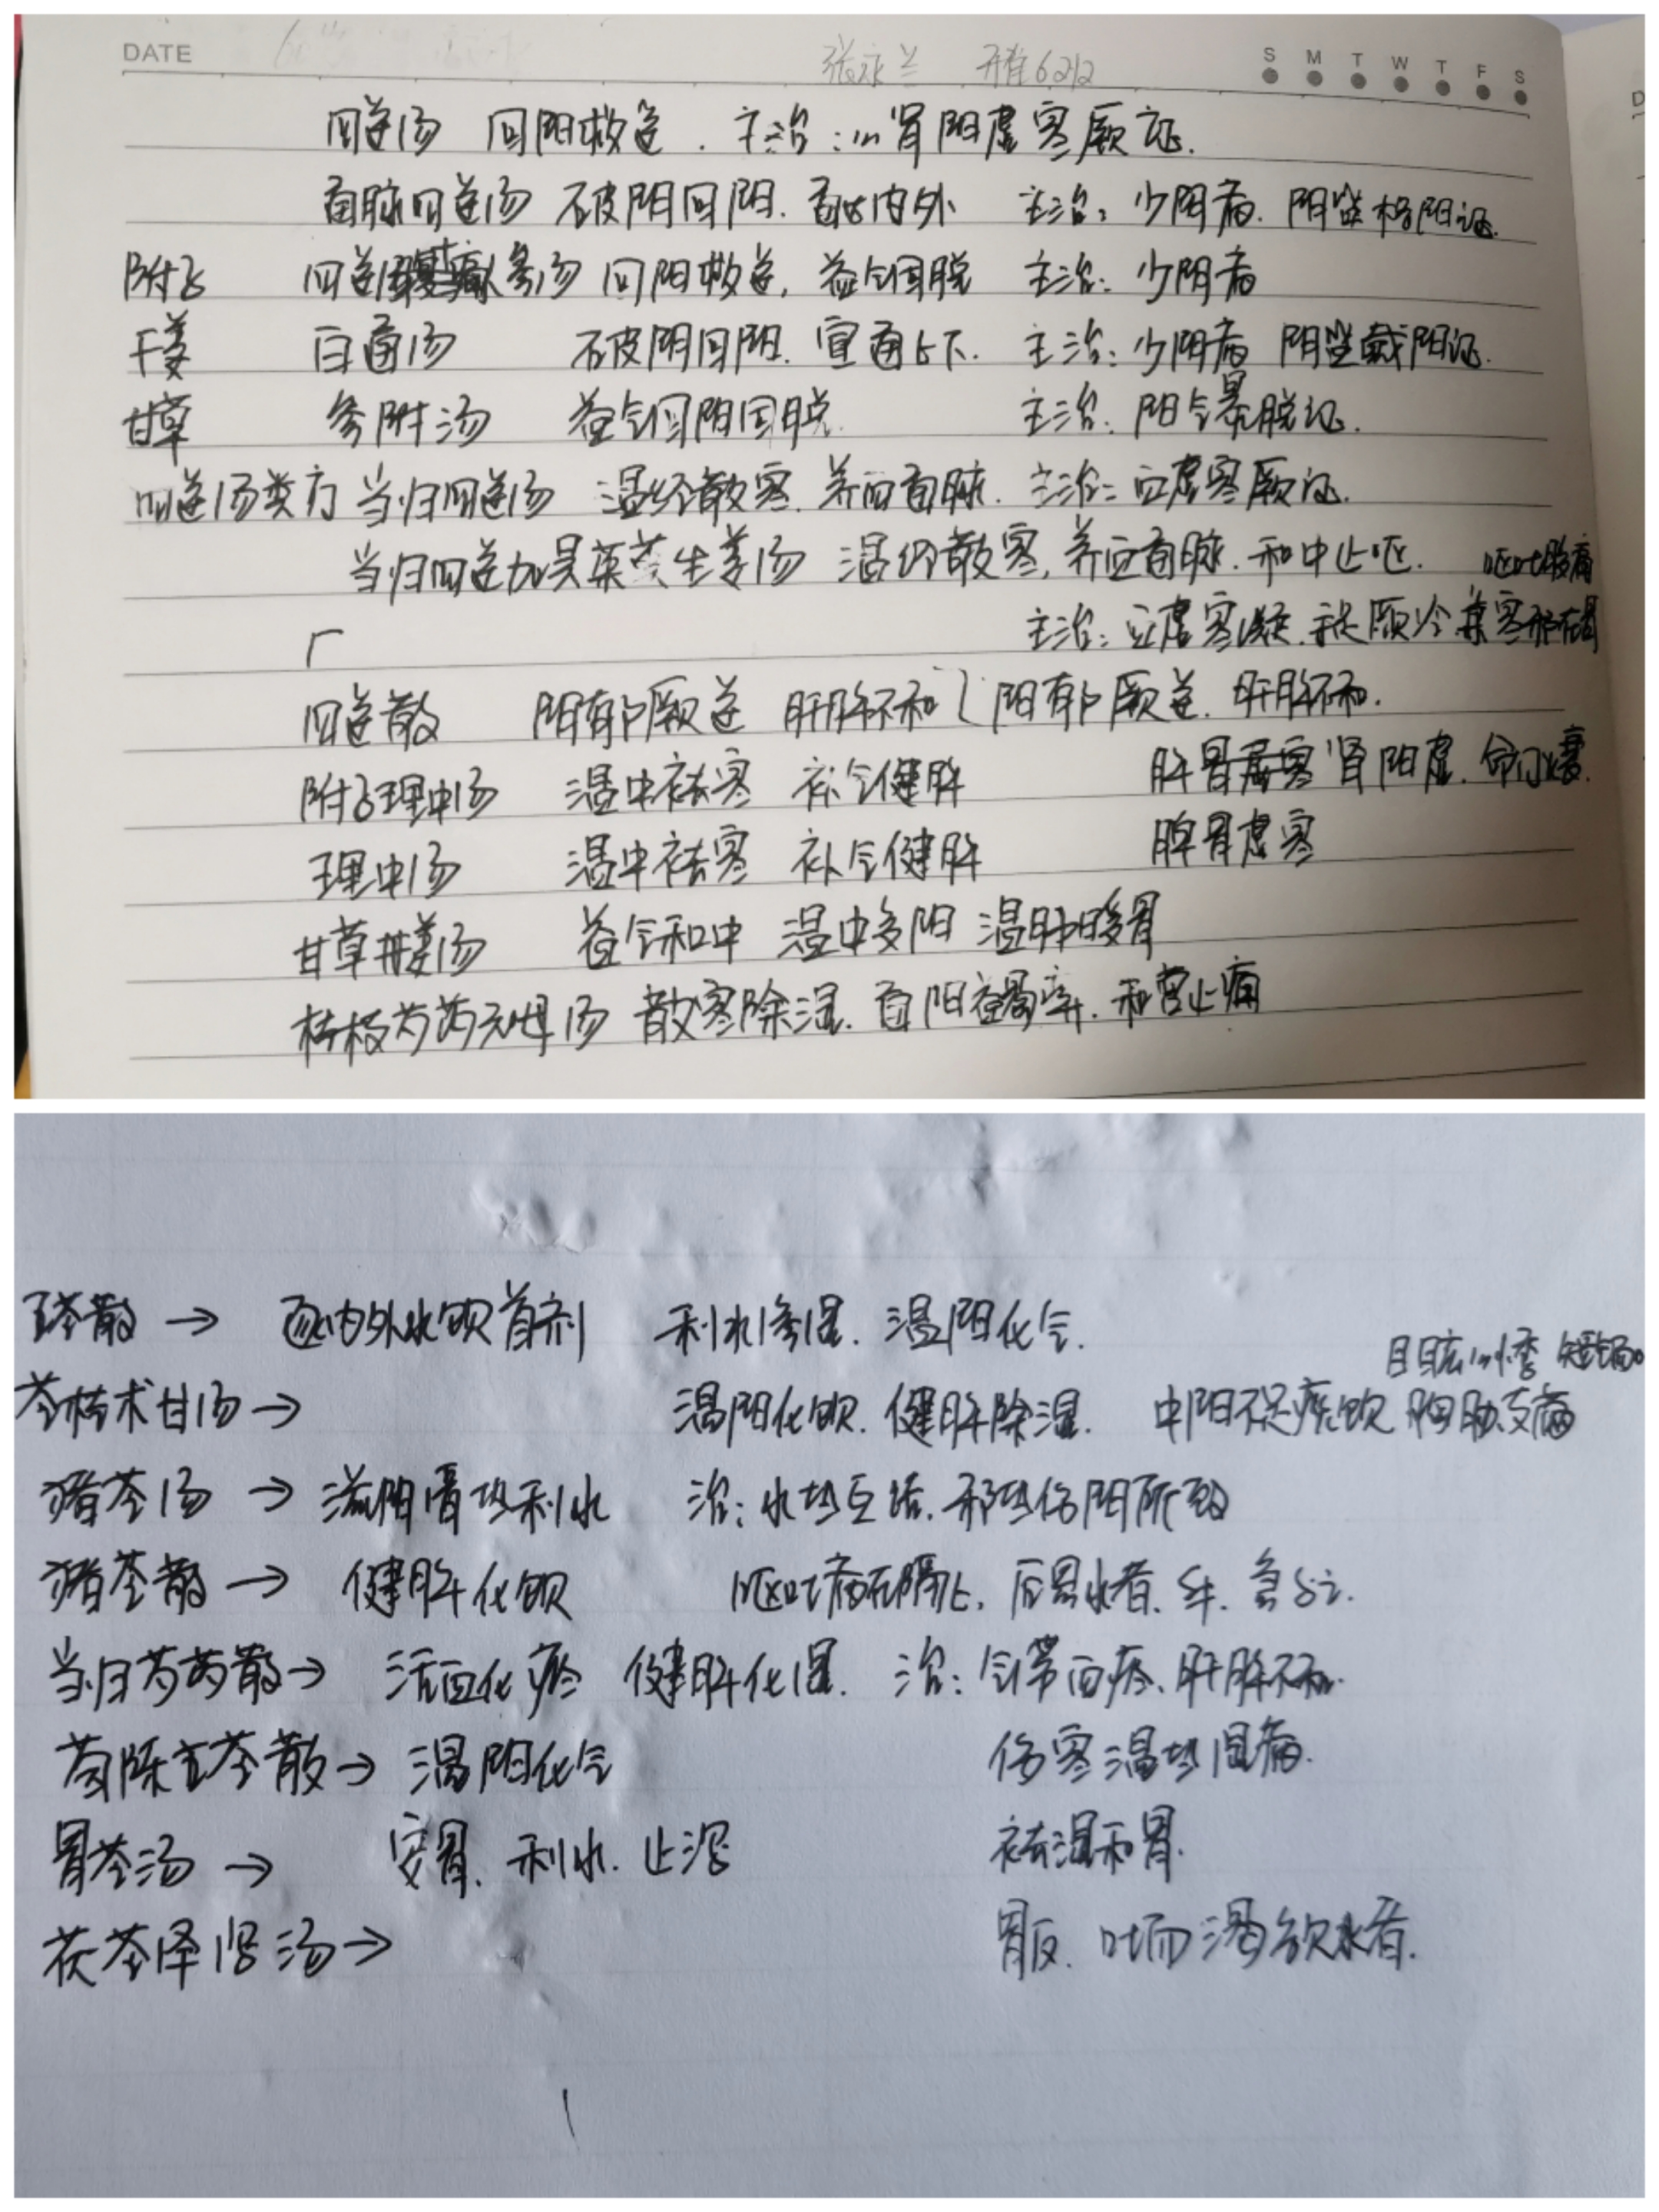 DATE
S M T W T F S
四逆汤 回阳救逆. 主治:心肾阳虚寒厥证.
通脉四逆汤 破阴回阳. 通达内外 主治:少阴病. 阴盛格阳证.
附子 四逆加人参汤 回阳救逆, 益气固脱 主治:少阴病
干姜 白通汤 破阴回阳. 宣通上下. 主治:少阴病 阴盛戴阳证.
甘草 参附汤 益气回阳固脱. 主治:阳气暴脱证.
四逆汤类方 当归四逆汤 温经散寒. 养血通脉. 主治:血虚寒厥证.
当归四逆加吴茱萸生姜汤 温经散寒, 养血通脉. 和中止呕. 呕吐腹痛
主治:血虚寒凝. 手足厥冷 兼寒邪在胃
四逆散 阳郁厥逆 肝脾不和 阳郁厥逆. 肝脾不和.
附子理中汤 温中祛寒 补气健脾 脾胃虚寒 肾阳虚. 命门火衰.
理中汤 温中祛寒 补气健脾 脾胃虚寒
甘草干姜汤 益气和中 温中复阳 温肺暖胃
桂枝芍药知母汤 散寒除湿. 通阳宣痹. 和营止痛
五苓散 → 逐内外水饮首剂 利水渗湿. 温阳化气.
目眩心悸 短气而咳
苓桂术甘汤 → 温阳化饮. 健脾除湿. 中阳不足痰饮 胸胁支满
猪苓汤 → 滋阴清热利水 治:水热互结. 邪热伤阴所致
猪苓散 → 健脾化饮 呕吐病在膈上, 后思水者. 解. 急与之.
当归芍药散 → 活血化瘀 健脾化湿. 治:气滞血瘀、肝脾不和.
茵陈五苓散 → 温阳化气 伤寒温热湿病.
胃苓汤 → 安胃. 利水. 止泻 祛湿和胃.
茯苓泽泻汤 → 胃反. 吐而渴欲饮水者.